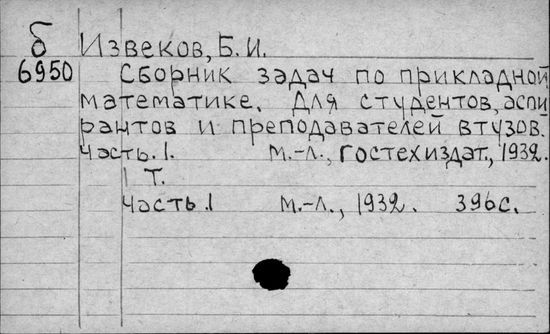 б Извеков, Б. И.
6950 Сборник задач по прикладной
математике. Для студентов, аспи
рантов и преподавателей втузов.
Часть. 1. М.-Л., Гостехиздат., 1932.
1 Т.
Часть 1 М.-Л., 1932. 396с.